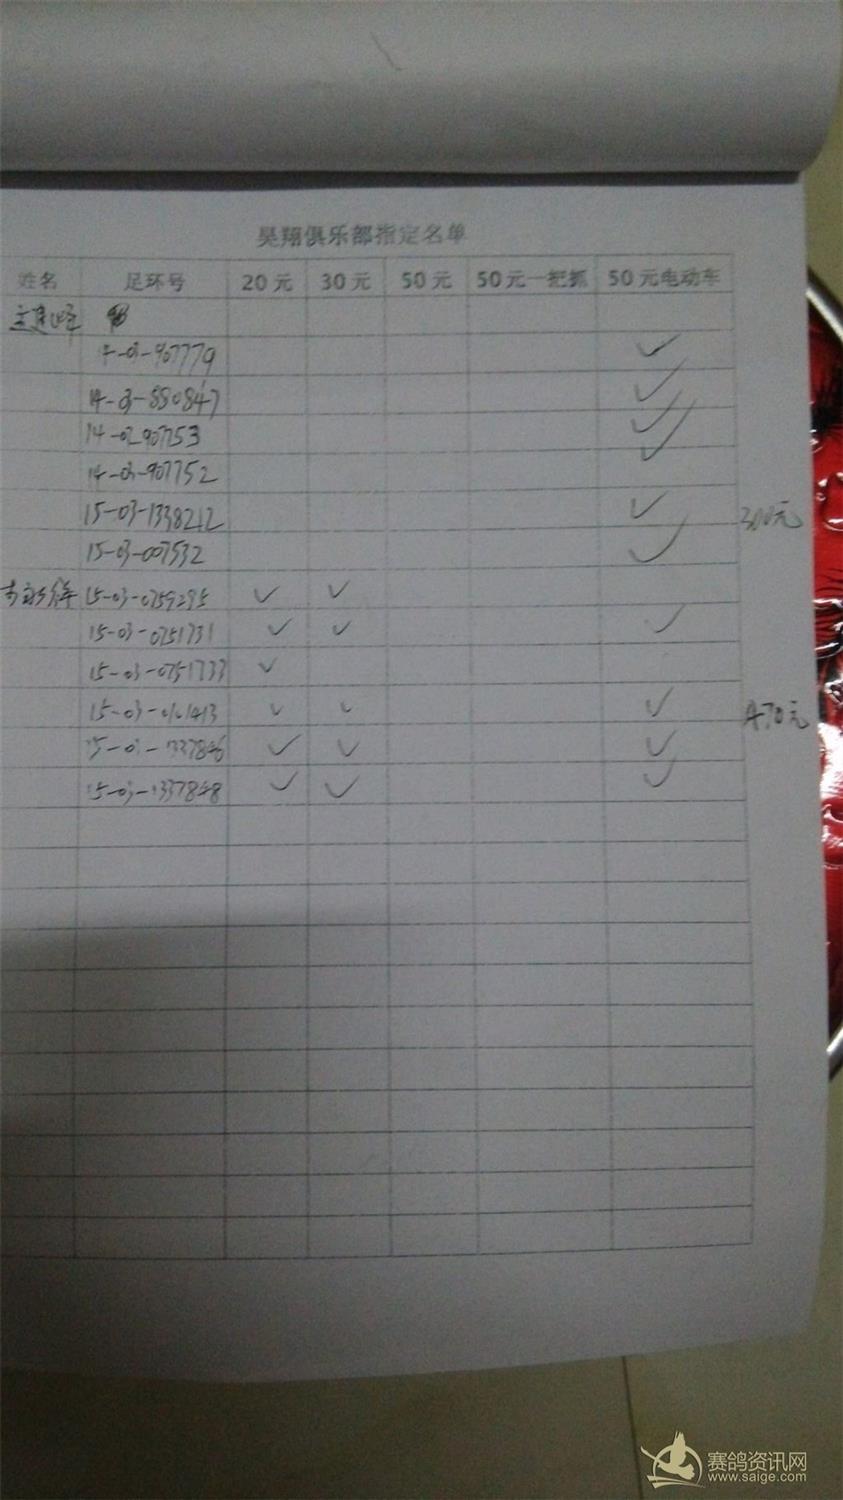 昊翔俱乐部指定名单
姓名 足环号 20元 30元 50元 50元一把抓 50元电动车
14-03-907779 ✓
14-03-880847 ✓
14-02907753 ✓
14-03-907752 ✓
15-03-1338212 ✓ 300元
15-03-007532 ✓
15-03-0759295 ✓ ✓
15-03-0751731 ✓ ✓ ✓
15-03-0751733 ✓
15-03-0161413 ✓ ✓ ✓ 470元
15-03-1337846 ✓ ✓ ✓
15-03-1337848 ✓ ✓ ✓
赛鸽资讯网
www.saige.com